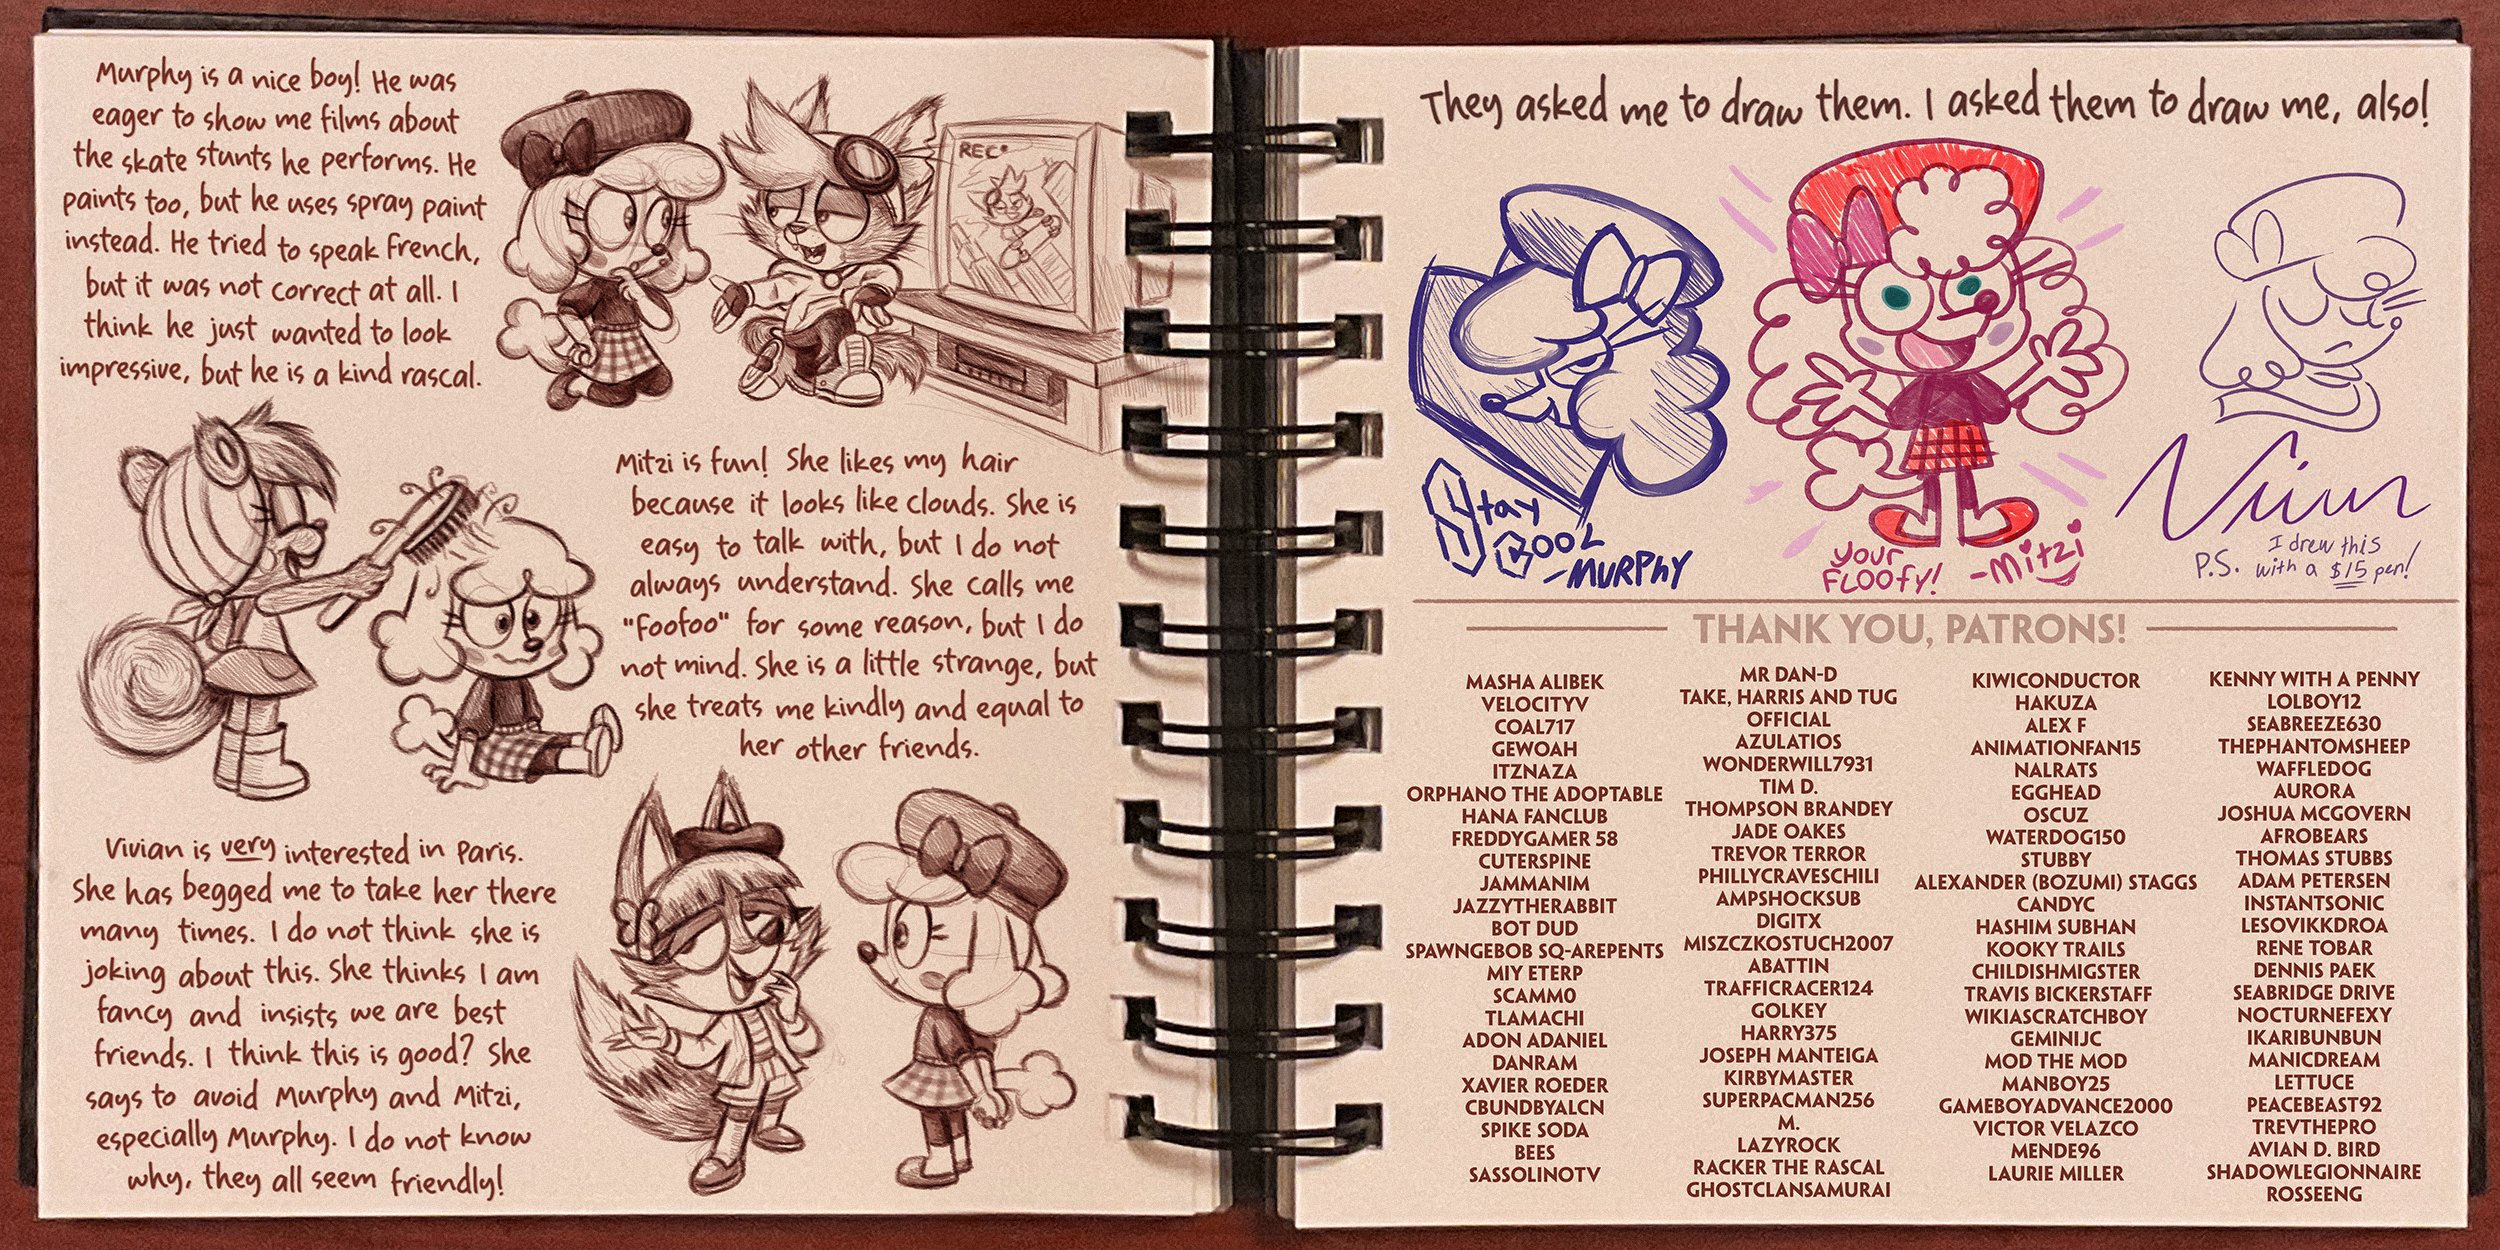 Murphy is a nice boy! He was
eager to show me films about
the skate stunts he performs. He
paints too, but he uses spray paint
instead. He tried to speak french,
but it was not correct at all. I
think he just wanted to look
impressive, but he is a kind rascal.
REC•
Mitzi is fun! She likes my hair
because it looks like clouds. She is
easy to talk with, but I do not
always understand. She calls me
"Foofoo" for some reason, but I do
not mind. She is a little strange, but
she treats me kindly and equal to
her other friends.
Vivian is very interested in Paris.
She has begged me to take her there
many times. I do not think she is
joking about this. She thinks I am
fancy and insists we are best
friends. I think this is good? She
says to avoid Murphy and Mitzi,
especially Murphy. I do not know
why, they all seem friendly!
They asked me to draw them. I asked them to draw me, also!
Stay
Cool
-MURPHY
your
FLOOFY!
-Mitzi
Vivian
P.S. I drew this
with a $15 pen!
THANK YOU, PATRONS!
MASHA ALIBEK
VELOCITYV
COAL717
GEWOAH
ITZNAZA
ORPHANO THE ADOPTABLE
HANA FANCLUB
FREDDYGAMER 58
CUTERSPINE
JAMMANIM
JAZZYTHERABBIT
BOT DUD
SPAWNGEBOB SQ-AREPENTS
MIY ETERP
SCAMM0
TLAMACHI
ADON ADANIEL
DANRAM
XAVIER ROEDER
CBUNDBYALCN
SPIKE SODA
BEES
SASSOLINOTV
MR DAN-D
TAKE, HARRIS AND TUG
OFFICIAL
AZULATIOS
WONDERWILL7931
TIM D.
THOMPSON BRANDEY
JADE OAKES
TREVOR TERROR
PHILLYCRAVESCHILI
AMPSHOCKSUB
DIGITX
MISZCZKOSTUCH2007
ABATTIN
TRAFFICRACER124
GOLKEY
HARRY375
JOSEPH MANTEIGA
KIRBYMASTER
SUPERPACMAN256
M.
LAZYROCK
RACKER THE RASCAL
GHOSTCLANSAMURAI
KIWICONDUCTOR
HAKUZA
ALEX F
ANIMATIONFAN15
NALRATS
EGGHEAD
OSCUZ
WATERDOG150
STUBBY
ALEXANDER (BOZUMI) STAGGS
CANDYC
HASHIM SUBHAN
KOOKY TRAILS
CHILDISHMIGSTER
TRAVIS BICKERSTAFF
WIKIASCRATCHBOY
GEMINIJC
MOD THE MOD
MANBOY25
GAMEBOYADVANCE2000
VICTOR VELAZCO
MENDE96
LAURIE MILLER
KENNY WITH A PENNY
LOLBOY12
SEABREEZE630
THEPHANTOMSHEEP
WAFFLEDOG
AURORA
JOSHUA MCGOVERN
AFROBEARS
THOMAS STUBBS
ADAM PETERSEN
INSTANTSONIC
LESOVIKKDROA
RENE TOBAR
DENNIS PAEK
SEABRIDGE DRIVE
NOCTURNEFEXY
IKARIBUNBUN
MANICDREAM
LETTUCE
PEACEBEAST92
TREVTHEPRO
AVIAN D. BIRD
SHADOWLEGIONNAIRE
ROSSEENG